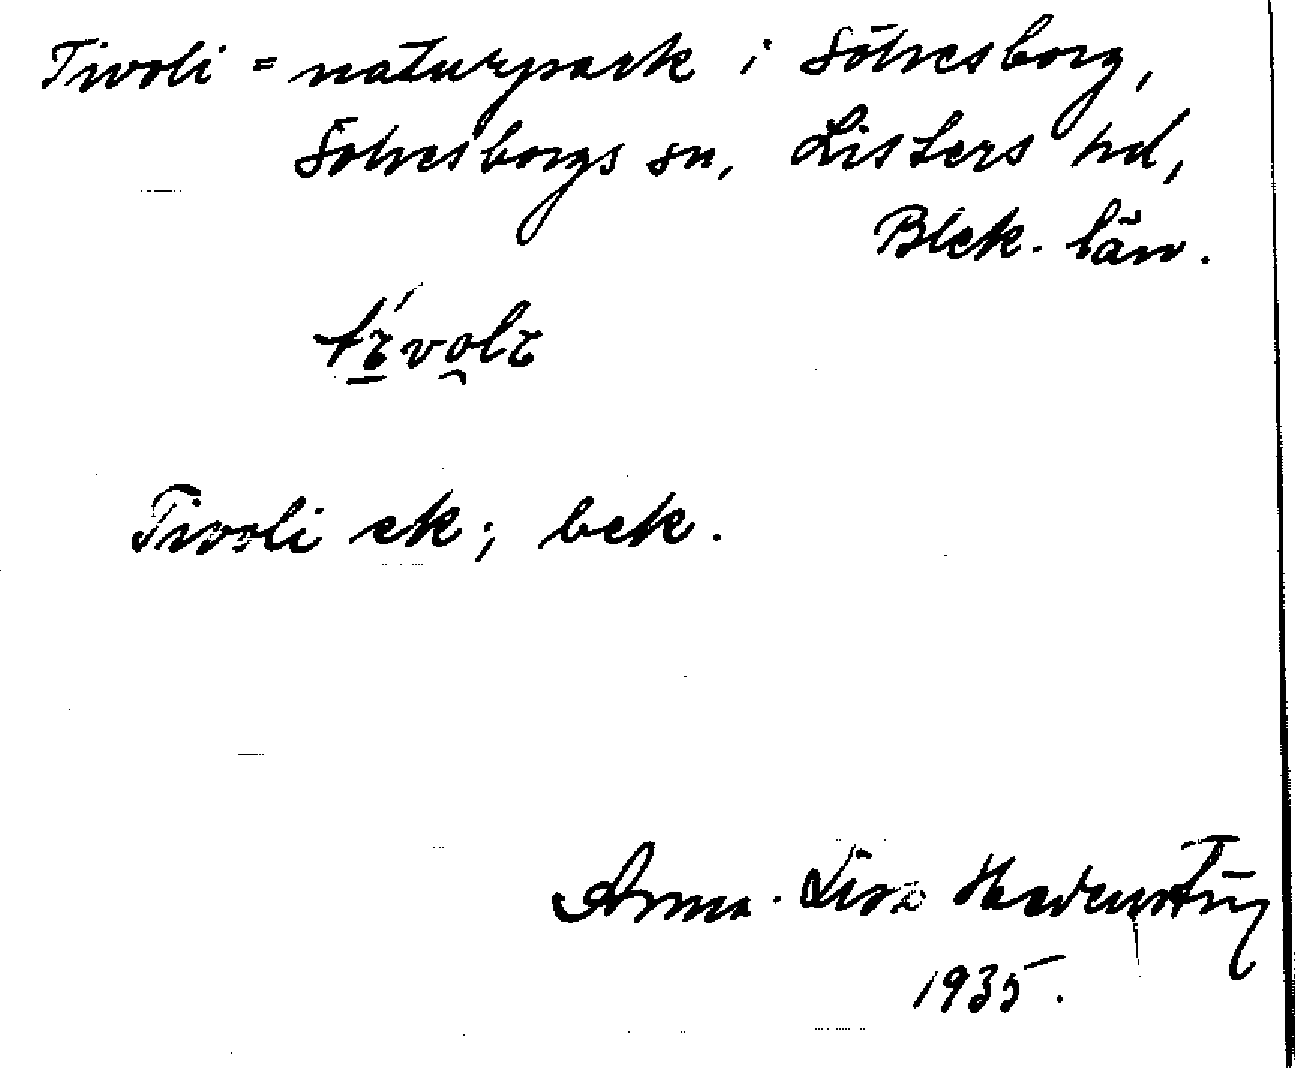 Tivoli = naturpark i Sölvesborg,
Sölvesborgs sn, Listers hd,
Blek. län.
tívolɩ
Tivoli ek; bek.
Anna-Lisa
1935.